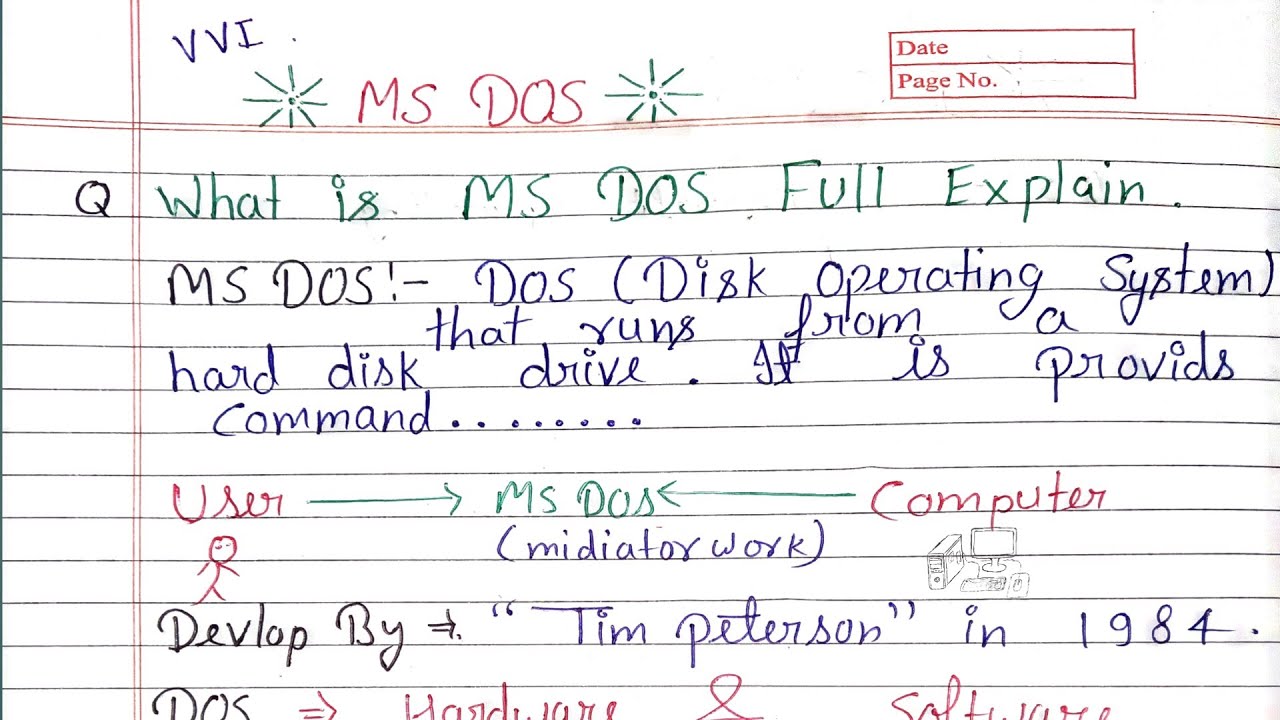 VVI.
Date
Page No.
MS DOS
Q What is MS DOS Full Explain.
MS DOS:- DOS (Disk operating System)
that runs from a
hard disk drive. It is provids
Command.........
User → MS DOS ← Computer
(midiator work)
Devlop By ⇒ "Tim peterson" in 1984.
DOS ⇒ Hardware & Software